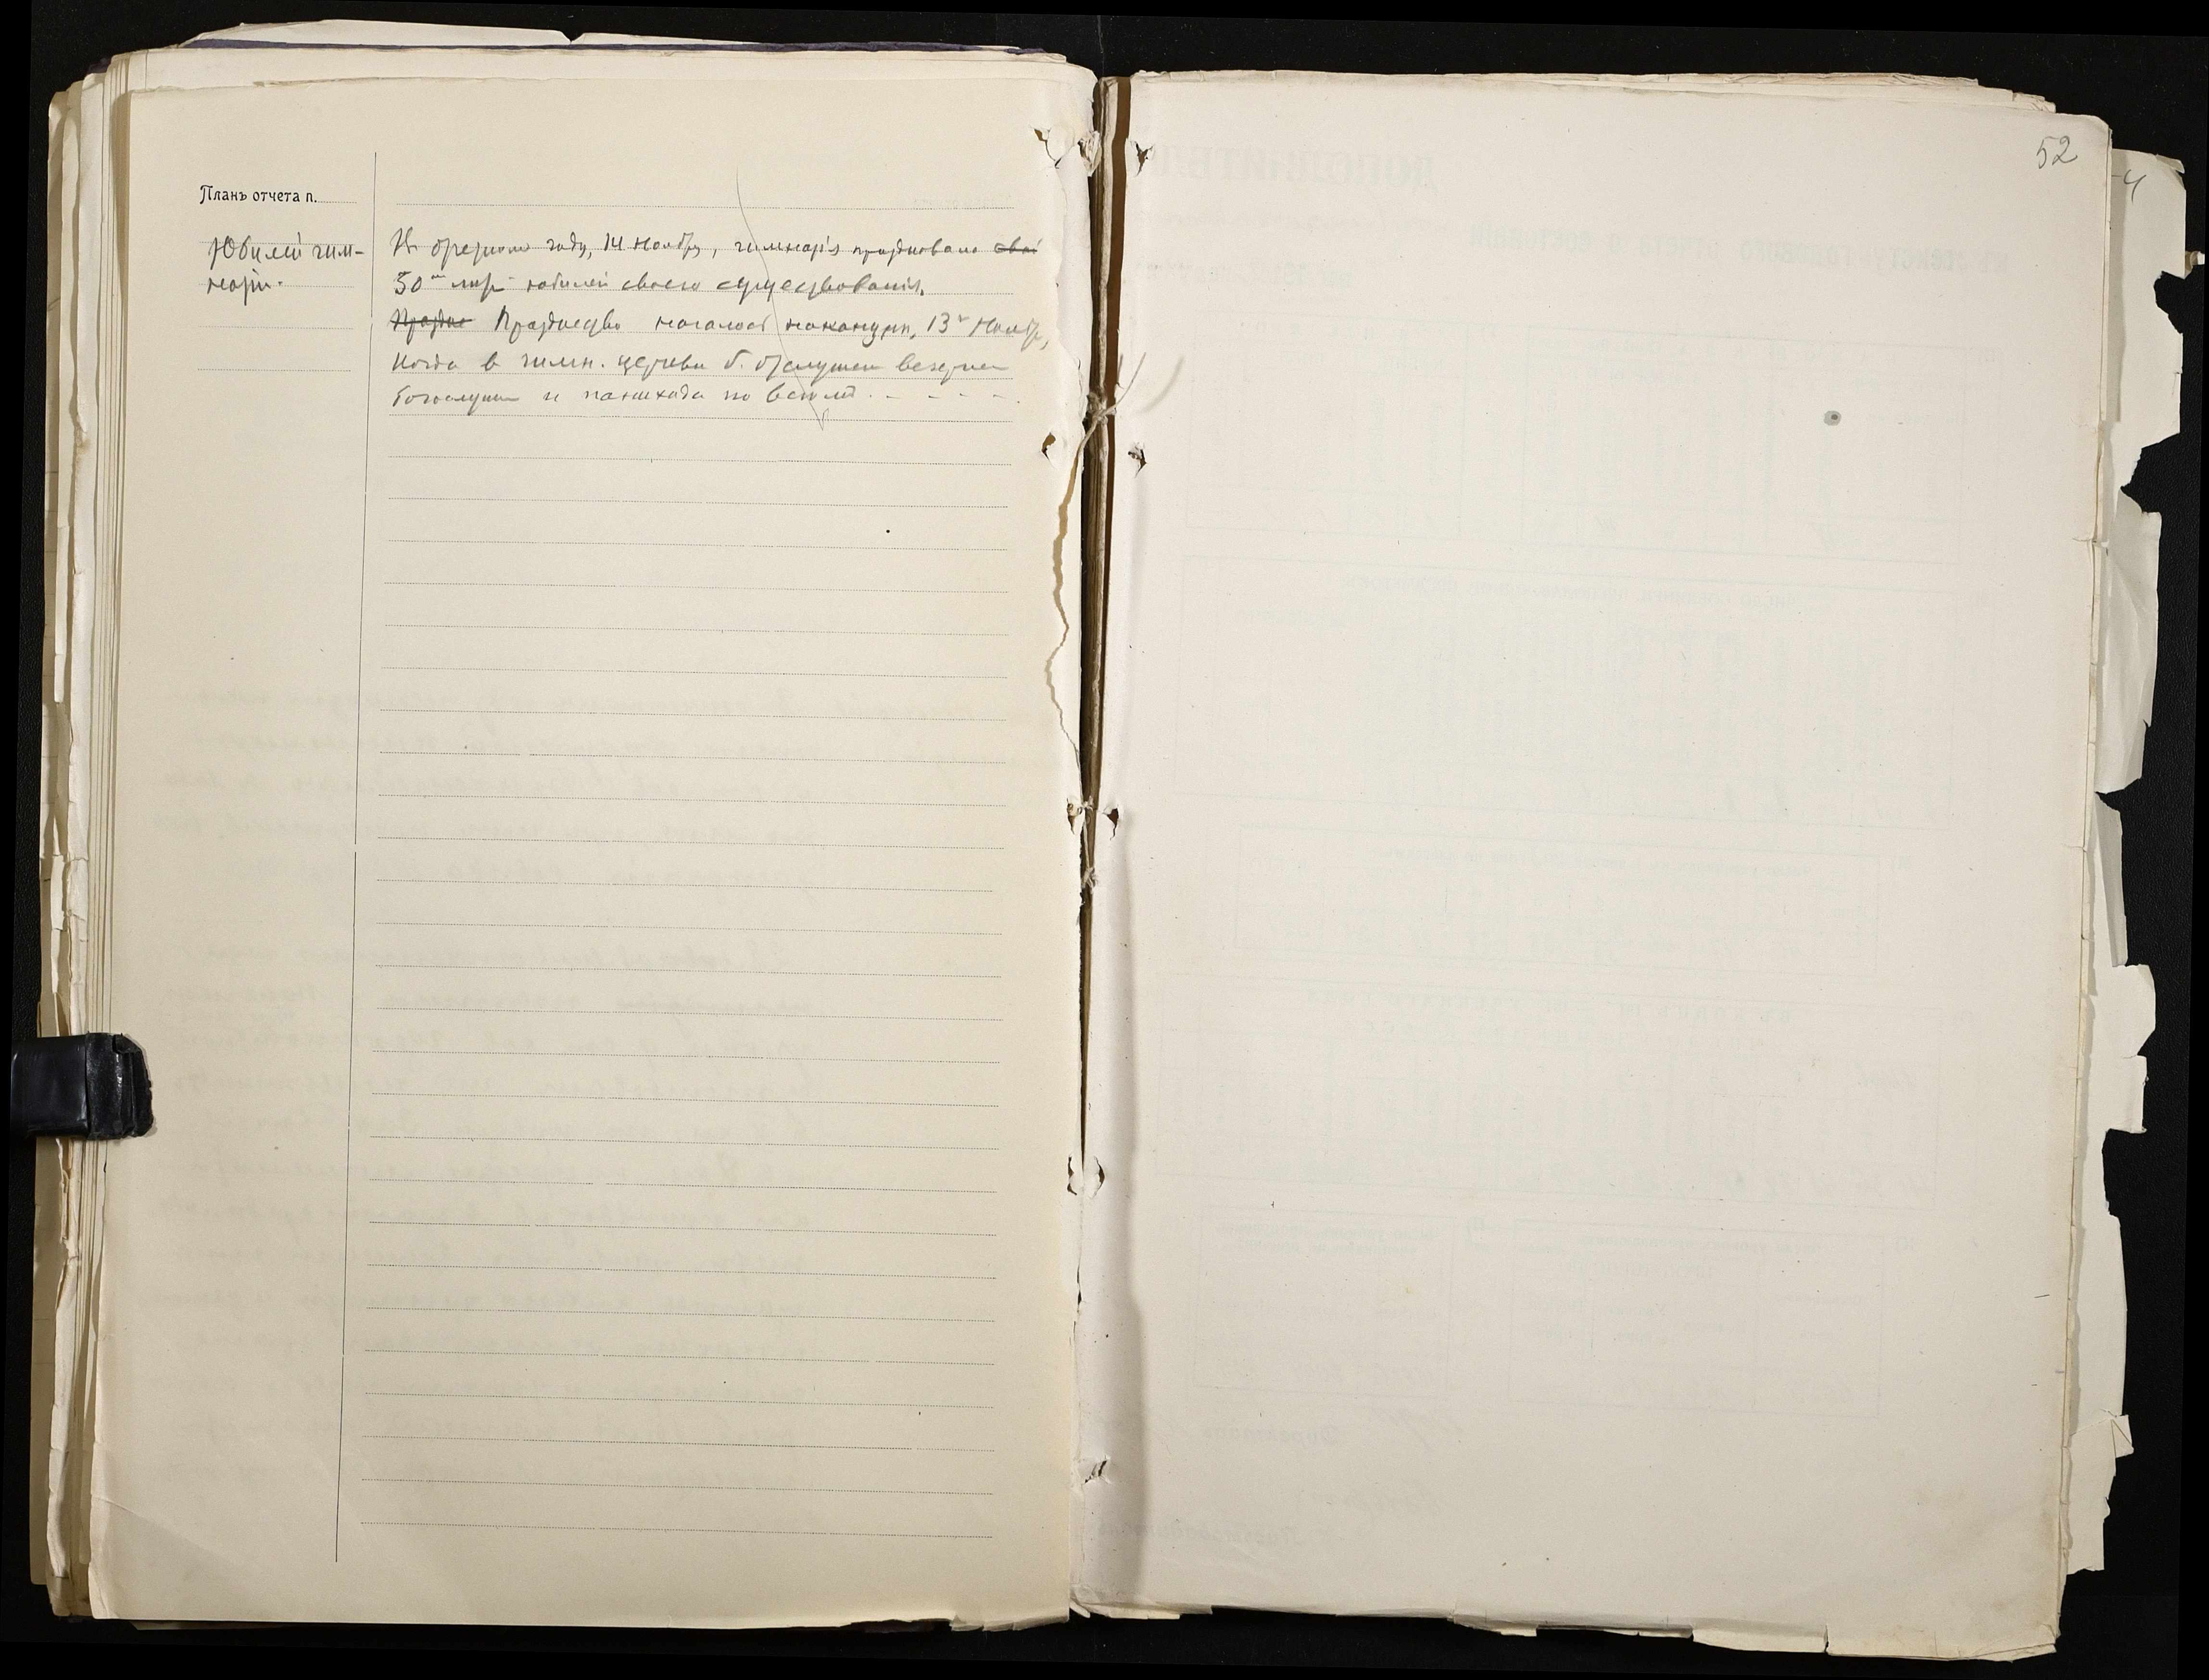 Планъ отчета п.
Юбилей гим-
назіи.
В отчетном году, 14 Ноября, гимназія праздновала свой
50 лет юбилей своего существованія.
Праздне Празднество началось накануне, 13го Ноября,
когда в гимн. церкви б. отслужен вечерне
богослужен и панихида по всем
52